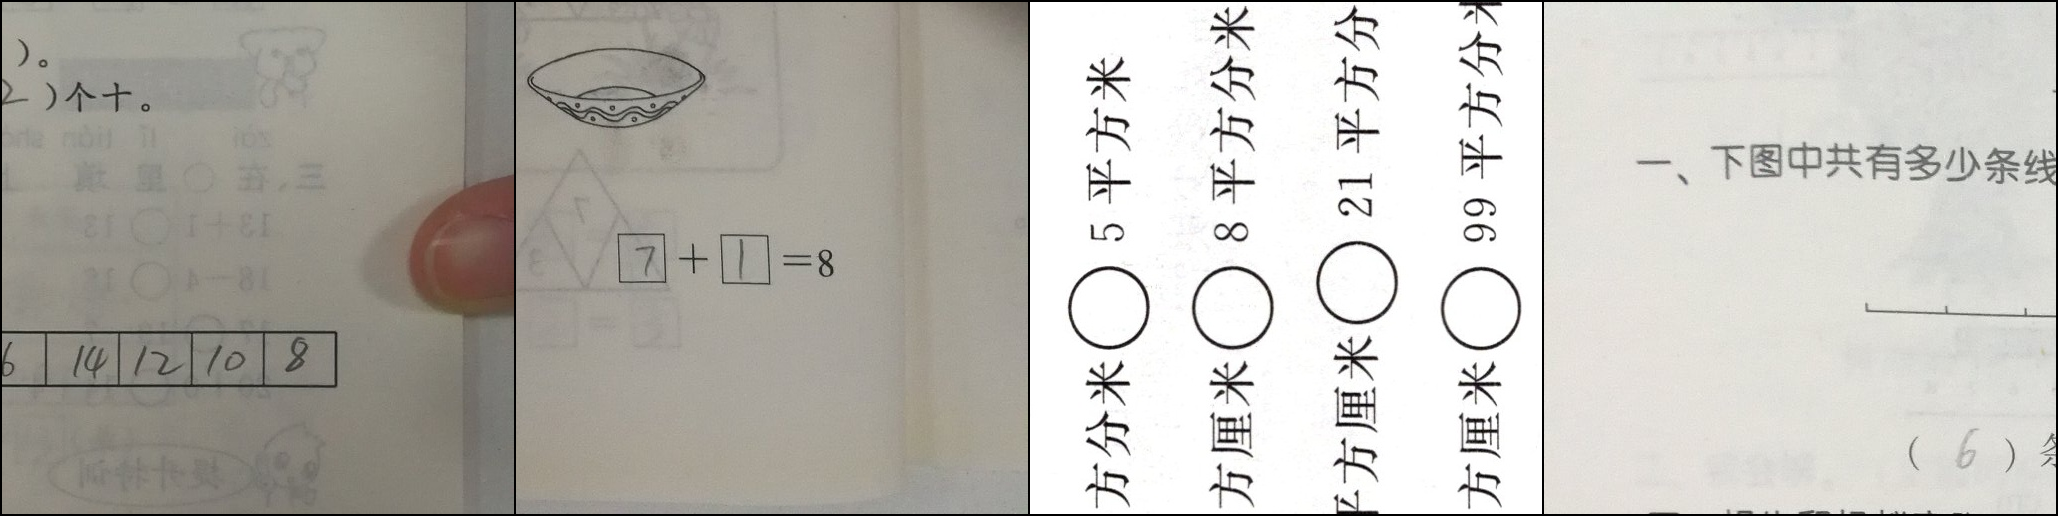 )。
2 )个十。
6 14 12 10 8
7 + 1 =8
方分米 ○ 5 平方米
方厘米 ○ 8 平方分米
平方厘米 ○ 21 平方分
方厘米 ○ 99 平方分米
一、下图中共有多少条线
( 6 ) 条